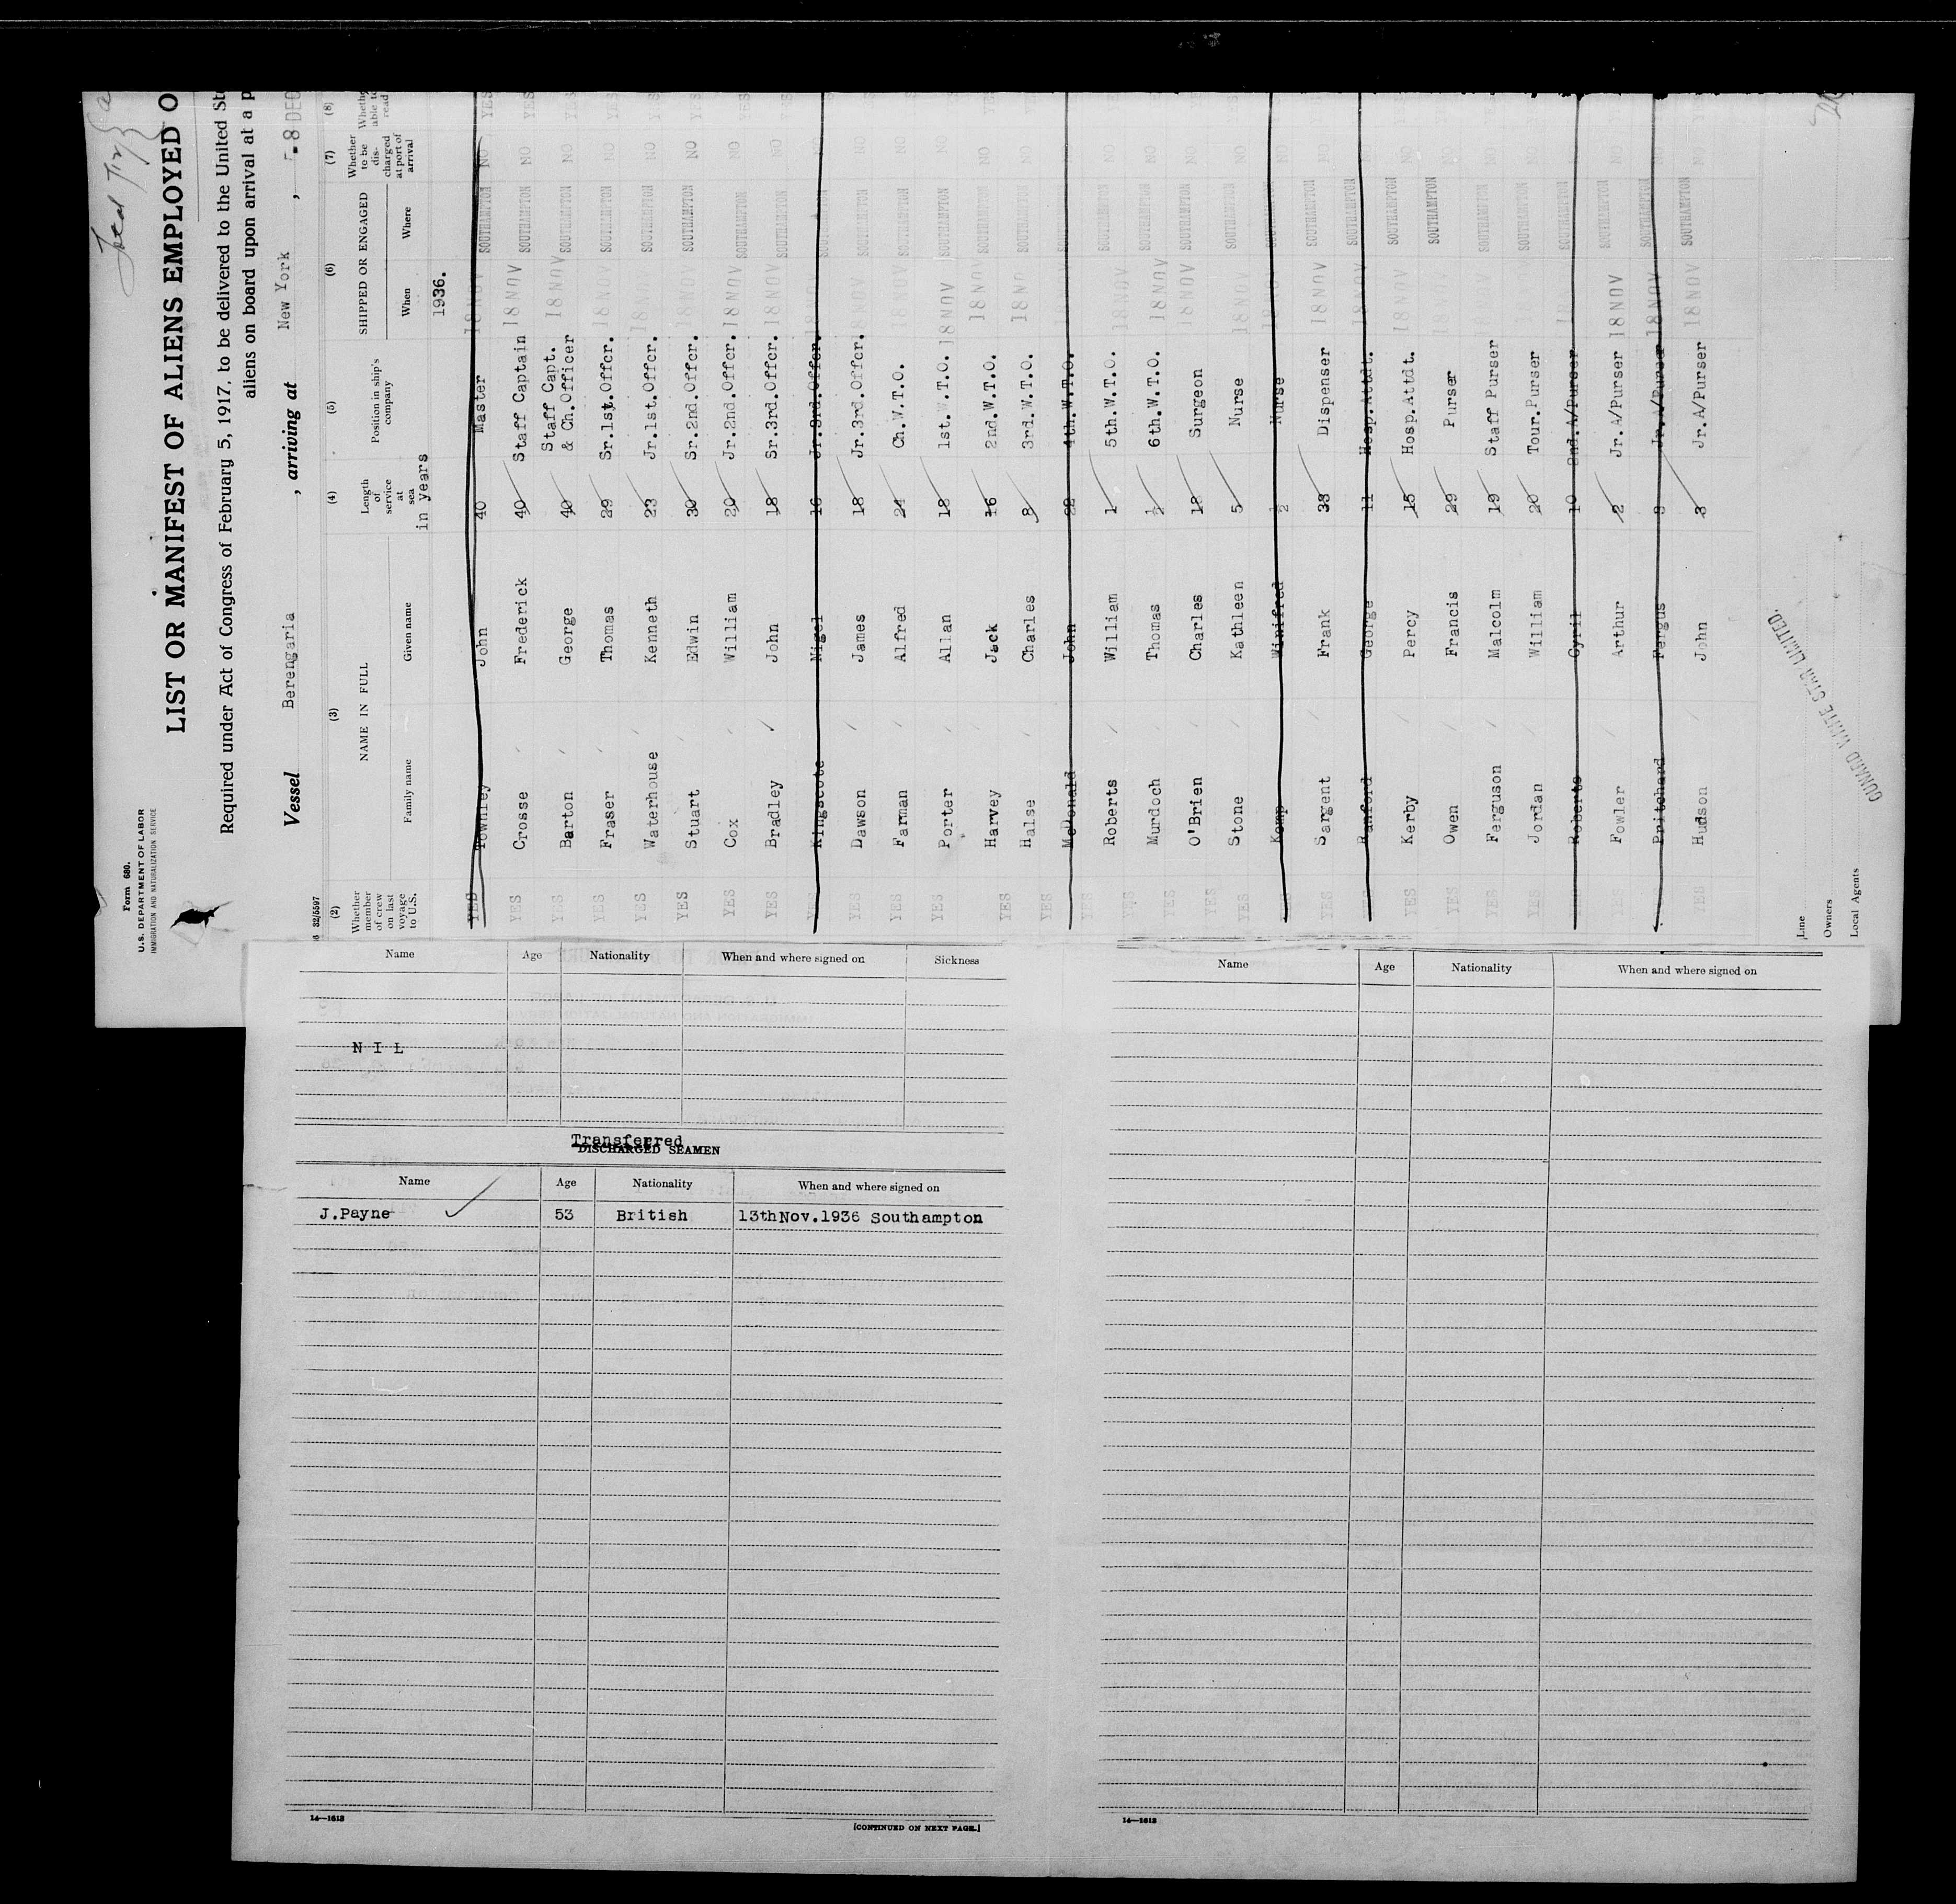 Form 680.
U.S. DEPARTMENT OF LABOR
IMMIGRATION AND NATURALIZATION SERVICE
LIST OR MANIFEST OF ALIENS EMPLOYED O
Required under Act of Congress of February 5, 1917, to be delivered to the United St
aliens on board upon arrival at a p
Vessel Berengaria , arriving at New York , 8 DEC
32/5597
(2) (3) (4) (5) (6) (7) (8)
Whether member of crew on last voyage to U.S. NAME IN FULL Family name Given name Length of service at sea in years Position in ship's company SHIPPED OR ENGAGED When Where Whether to be discharged at port of arrival Wheth able to read
1936.
YES Townley John 40 Master 18 NOV SOUTHAMPTON NO YES
YES Crosse Frederick 40 Staff Captain 18 NOV SOUTHAMPTON NO YES
YES Barton George 40 Staff Capt. & Ch.Officer 18 NOV SOUTHAMPTON NO YES
YES Fraser Thomas 29 Sr.1st.Offcr. 18 NOV SOUTHAMPTON NO YES
YES Waterhouse Kenneth 23 Jr.1st.Offcr. 18 NOV SOUTHAMPTON NO YES
YES Stuart Edwin 30 Sr.2nd.Offcr. 18 NOV SOUTHAMPTON NO YES
YES Cox William 20 Jr.2nd.Offcr. 18 NOV SOUTHAMPTON NO YES
YES Bradley John 18 Sr.3rd.Offcr. 18 NOV SOUTHAMPTON NO YES
YES Kingscote Nigel 16 Jr.3rd.Offcr. 18 NOV SOUTHAMPTON
YES Dawson James 18 Jr.3rd.Offcr. 18 NOV SOUTHAMPTON NO
YES Farman Alfred 24 Ch.W.T.O. 18 NOV SOUTHAMPTON NO
YES Porter Allan 18 1st.W.T.O. 18 NOV SOUTHAMPTON NO
YES Harvey Jack 16 2nd.W.T.O. 18 NOV SOUTHAMPTON NO YES
YES Halse Charles 8 3rd.W.T.O. 18 NO SOUTHAMPTON NO
YES McDonald John 22 4th.W.T.O. SOUTHAMPTON
YES Roberts William 1 5th.W.T.O. 18 NOV SOUTHAMPTON NO
YES Murdoch Thomas ½ 6th.W.T.O. 18 NOV SOUTHAMPTON NO
YES O'Brien Charles 18 Surgeon 18 NOV SOUTHAMPTON NO
YES Stone Kathleen 5 Nurse 18 NOV SOUTHAMPTON NO
Kemp Winifred ½ Nurse SOUTHAMPTON NO
YES Sargent Frank 33 Dispenser 18 NOV SOUTHAMPTON NO
Ranford George 11 Hosp.Attdt. 18 NOV SOUTHAMPTON
YES Kerby Percy 15 Hosp.Attdt. 18 NOV SOUTHAMPTON NO
YES Owen Francis 29 Purser SOUTHAMPTON NO
YES Ferguson Malcolm 19 Staff Purser SOUTHAMPTON NO
YES Jordan William 20 Tour.Purser SOUTHAMPTON NO
Roberts Cyril 10 2nd.A/Purser SOUTHAMPTON
YES Fowler Arthur 2 Jr.A/Purser 18 NOV SOUTHAMPTON NO
Pritchard Fergus 3 Jr.A/Purser 18 NOV SOUTHAMPTON NO
YES Hudson John 3 Jr.A/Purser 18 NOV SOUTHAMPTON NO
CUNARD WHITE STAR LIMITED.
Line
Owners
Local Agents
Name Age Nationality When and where signed on Sickness
N I L
Transferred
DISCHARGED SEAMEN
Name Age Nationality When and where signed on
J.Payne 53 British 13thNov.1936 Southampton
14—1613
[CONTINUED ON NEXT PAGE.]
Name Age Nationality When and where signed on
14—1613